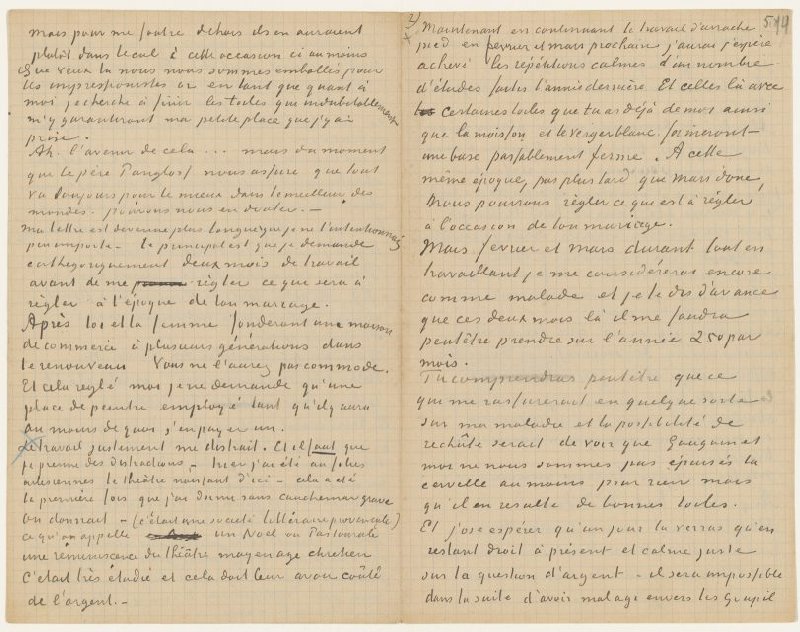 mais pour me foutre dehors ils en auraient
plutôt dans le cul à cette occasion ci au moins
Que veux tu nous nous sommes emballés pour
les impressionistes or en tant que quant à
moi je cherche à finir les toiles que indubitablement
m'y garantiront ma petite place que j'y ai
prise.
Ah. l'avenir de cela ... mais du moment
que le père Pangloss nous assure que tout
va toujours pour le mieux dans le meilleur des
mondes – pouvons nous en douter. –
ma lettre est devenue plus longue que je ne l'intentionnais
peu importe – le principal est que je demande
cathégoriquement deux mois de travail
avant de régler ce que sera à
règler à l'époque de ton mariage.
Après toi et ta femme fonderont une maison
de commerce à plusieurs générations dans
le renouveau Vous ne l'aurez pas commode.
Et cela reglé moi je ne demande qu'une
place de peintre employé tant qu'il y aura
au moins de quoi s'en payer un.
Le travail justement me distrait. Et il faut que
je prenne des distractions – hier j'ai été au folies
arlesiennes le théatre naissant d'ici – cela a été
la première fois que j'ai dormi sans cauchemar grave
On donnait – (c'était une société litteraire provencale)
ce qu'on appelle un Noel ou Pastourale
une réminiscence du théâtre moyenage chretien
C'était très étudié et cela doit leur avoir coûté
de l'argent. –
2)
Maintenant en continuant le travail d'arrache
579
pied en fevrier et mars prochain j'aurai j'espère
achevé les répétitions calmes d'un nombre
d'études faites l'année dernière Et celles là avec
certaines toiles que tu as déjà de moi ainsi
que la moisson et le verger blanc formeront
une base passablement ferme. A cette
même époque, pas plus tard que mars donc,
nous pourrons régler ce que est à régler
à l'occasion de ton mariage.
Mais fevrier et mars durant tout en
travaillant je me considérerai encore
comme malade et je te dis d'avance
que ces deux mois là il me faudra
peutêtre prendre sur l'année 250 par
mois.
Tu comprendras peutêtre que ce
que me rassurerait en quelque sorte
sur ma maladie et la possibilité de
rechûte serait de voir que Gauguin et
moi ne nous sommes pas épuisés la
cervelle au moins pour rien mais
qu'il en resulte de bonnes toiles.
Et j'ose espérer qu'un jour tu verras qu'en
restant droit à présent et calme juste
sur la question d'argent – il sera impossible
dans la suite d'avoir mal agé envers les Goupil